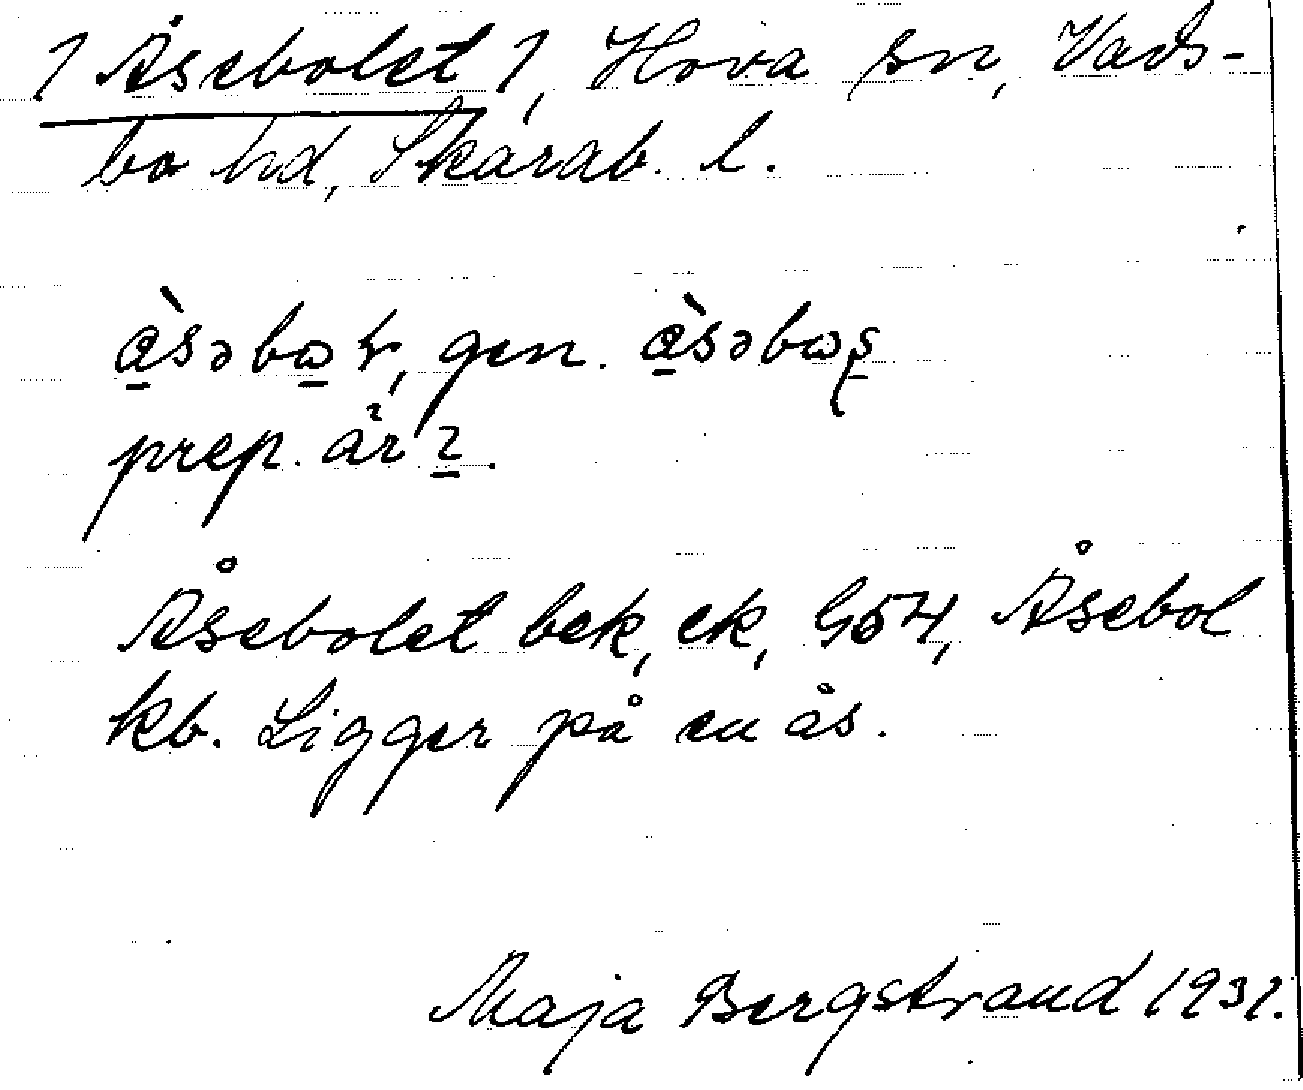 1 Åsebolet 1, Hova sn, Vads-
bo hd, Skarab. l.
à̱səbꞷ̱ɫ, gen. à̱səbꞷʂ
prep. är
Åsebolet bek, ek, G54, Åsebol
kb. Ligger på en ås.
Maja Bergstrand 1931.